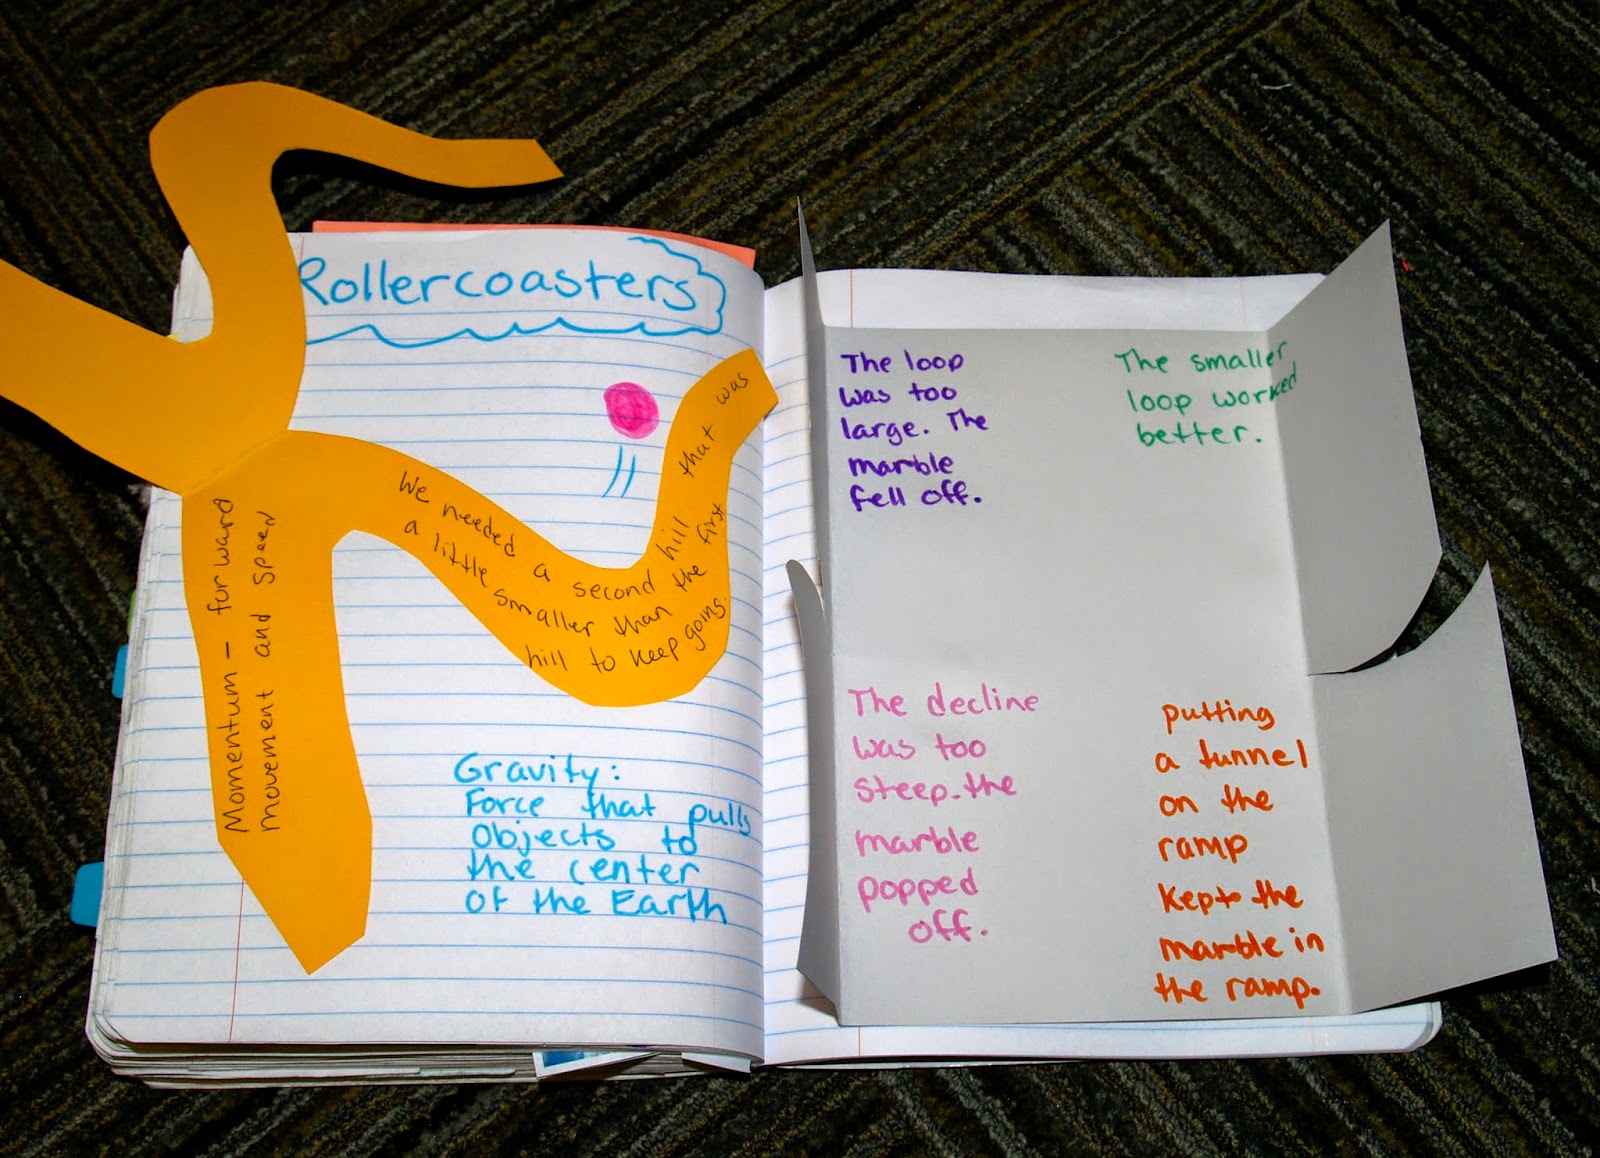 Rollercoasters
Momentum - forward
movement and speed
We needed a second hill that was
a little smaller than the first
hill to keep going.
Gravity:
Force that pulls
objects to
the center
of the Earth
The loop
was too
large. The
marble
fell off.
The smaller
loop worked
better.
The decline
was too
steep. the
marble
popped
off.
putting
a tunnel
on the
ramp
kept the
marble in
the ramp.